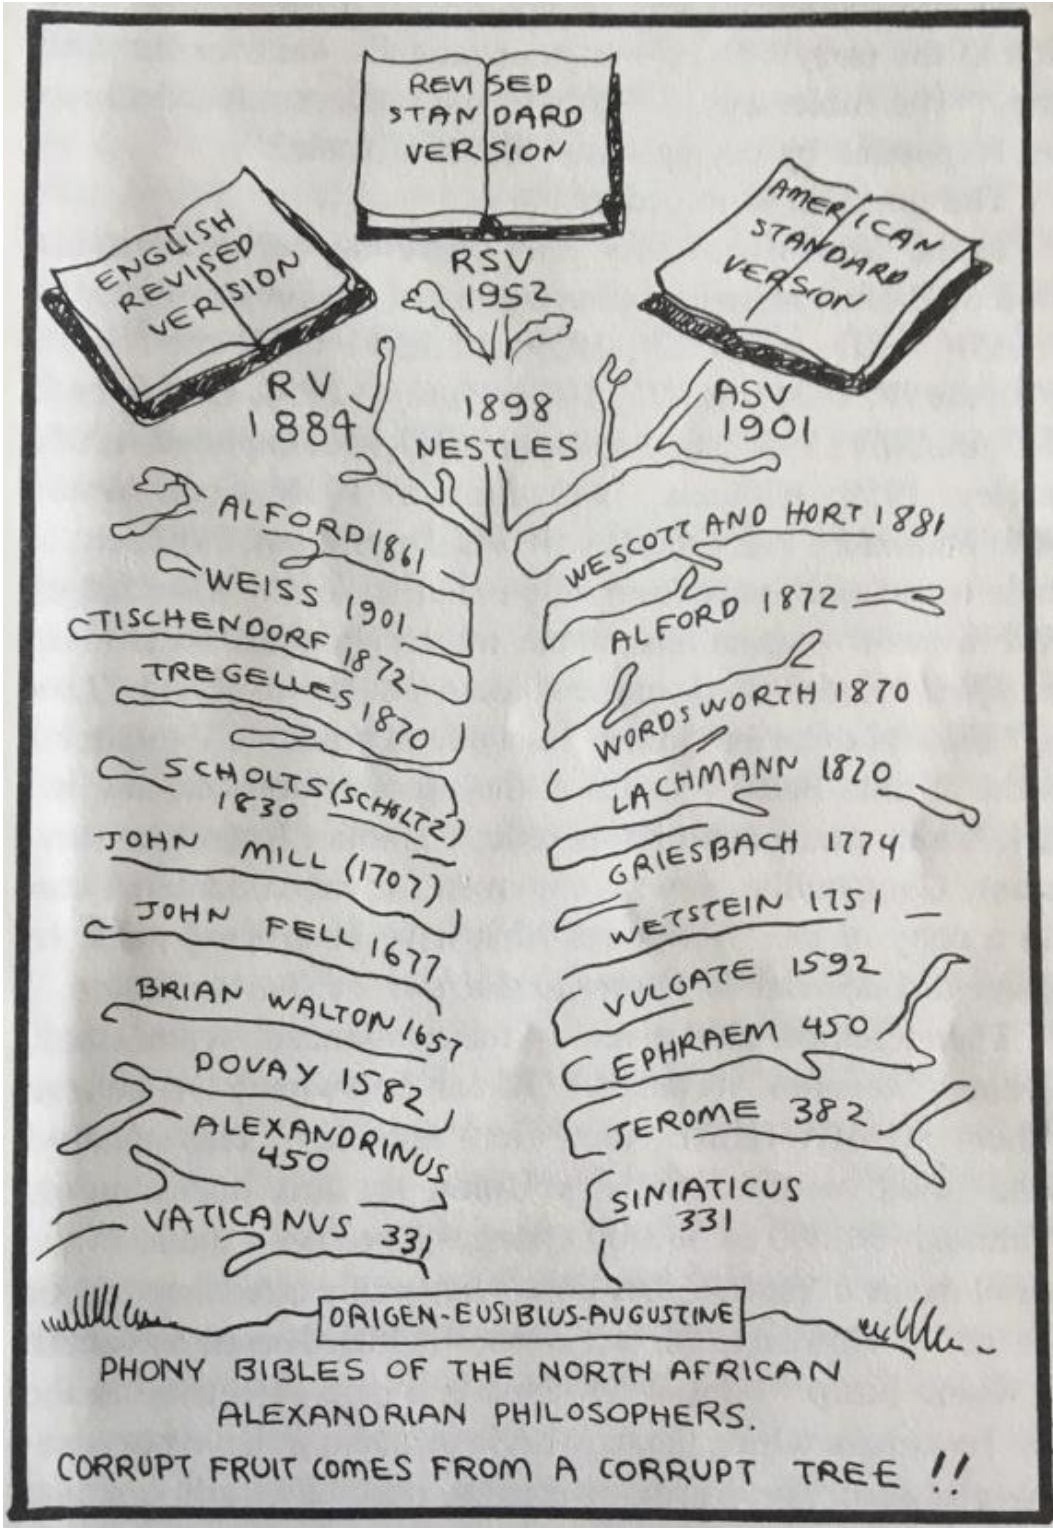 REVISED
STANDARD
VERSION
ENGLISH
REVISED
VERSION
AMERICAN
STANDARD
VERSION
RSV
1952
RV
1884
1898
NESTLES
ASV
1901
ALFORD 1861
WEISS 1901
TISCHENDORF 1872
TREGELLES 1870
SCHOLTS (SCHOLTZ)
1830
JOHN MILL (1707)
JOHN FELL 1677
BRIAN WALTON 1657
DOUAY 1582
ALEXANDRINUS
450
VATICANUS 331
WESCOTT AND HORT 1881
ALFORD 1872
WORDSWORTH 1870
LACHMANN 1820
GRIESBACH 1774
WETSTEIN 1751
VULGATE 1592
EPHRAEM 450
JEROME 382
SINIATICUS
331
ORIGEN-EUSIBIUS-AUGUSTINE
PHONY BIBLES OF THE NORTH AFRICAN
ALEXANDRIAN PHILOSOPHERS.
CORRUPT FRUIT COMES FROM A CORRUPT TREE !!